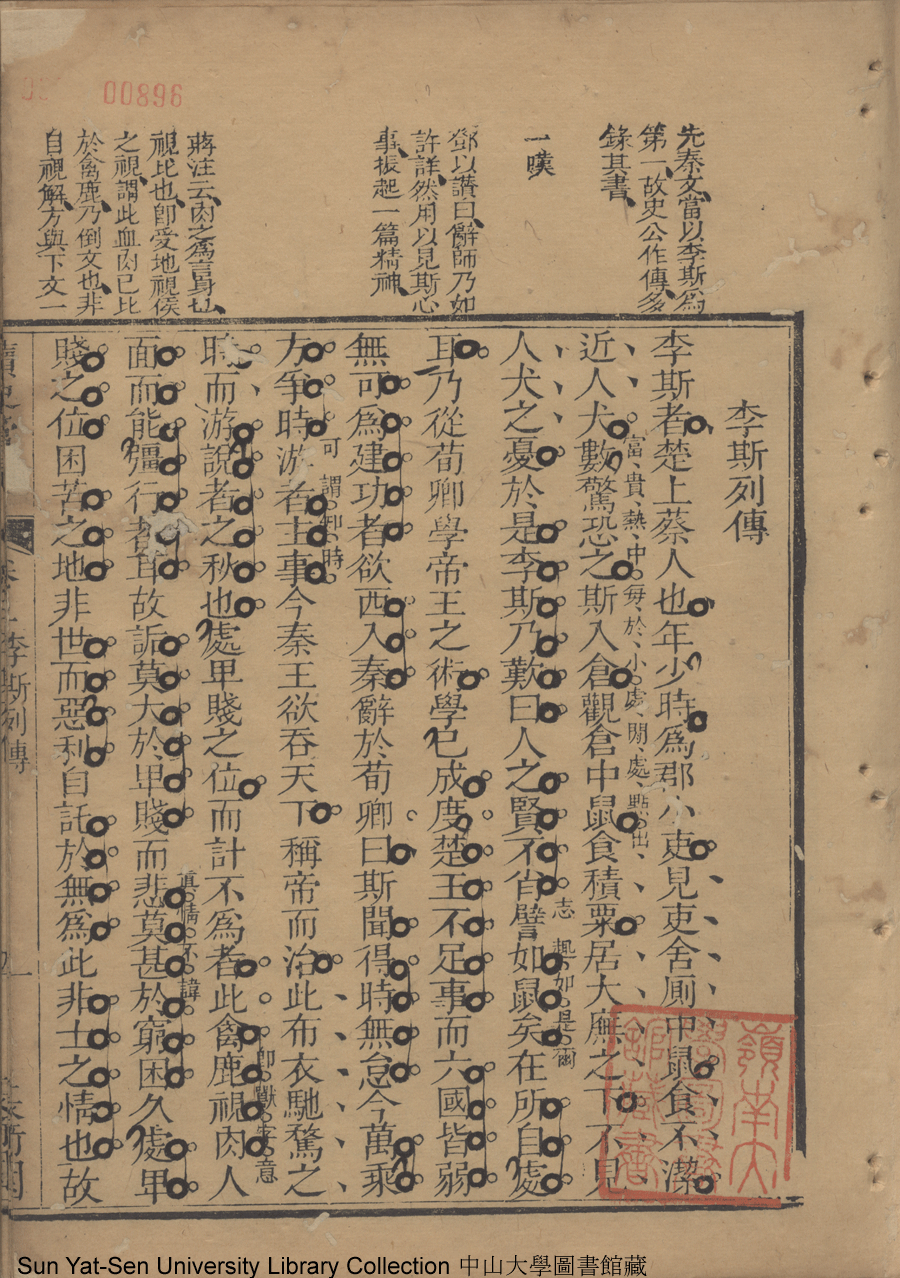 00896
先秦文當以李斯爲
第一故史公作傳多
錄其書
一嘆
鄧以讚曰辭師乃如
許詳然用以見斯心
事振起一篇精神
蔣注云肉之爲言身也
視比也卽爰地視侯
之視謂此血肉已比
於禽鹿乃倒文也非
自視解方與下文一
李斯列傳
李斯者楚上蔡人也年少時爲郡小吏見吏舍厠中鼠食不潔
近人犬數驚恐之斯入倉觀倉中鼠食積粟居大廡之下不見
富貴熱中每於小處閒處點出
人犬之憂於是李斯乃歎曰人之賢不肖譬如鼠矣在所自處
志趣如是爾
耳乃從荀卿學帝王之術學已成度楚王不足事而六國皆弱
無可爲建功者欲西入秦辭於荀卿曰斯聞得時無怠今萬乘
可謂知時
方爭時游者主事今秦王欲吞天下稱帝而治此布衣馳騖之
時而游說者之秋也處卑賤之位而計不爲者此禽鹿視肉人
卽獸安意
面而能彊行者耳故詬莫大於卑賤而悲莫甚於窮困久處卑
真情不諱
賤之位困苦之地非世而惡利自託於無爲此非士之情也故
李斯列傳
嶺南大
學圖書
館藏書
Sun Yat-Sen University Library Collection 中山大學圖書館藏